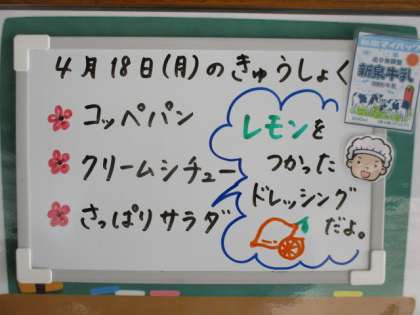 4月18日(月)のきゅうしょく
コッペパン
クリームシチュー
さっぱりサラダ
レモンを
つかった
ドレッシング
だよ。
牛乳